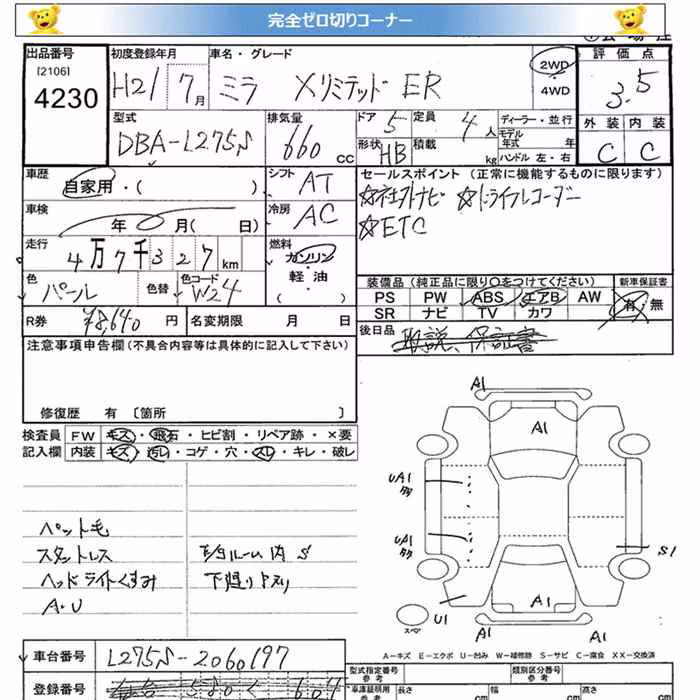 完全ゼロ切りコーナー
出品番号 初度登録年月 車名・グレード 2WD ・ 4WD 評価点
[2106]
4230 H21 7月 ミラ XリミテッドER 3.5
型式 排気量 ドア 定員 ディーラー・並行 外装 内装
DBA-L275S 660 CC 5 4人 モデル年式 年 C C
形状 HB 積載 kg ハンドル 左・右
車歴 シフト セールスポイント (正常に機能するものに限ります)
自家用・( ) AT ☆社外ナビ ☆ドライブレコーダー
車検 冷房 ☆ETC
年 0 月( 日) AC
走行 燃料
4万7千327km ガソリン・軽・油( )
色 色替 色コード 装備品(純正品に限り○をつけてください) 新車保証書
パール W24 PS PW ABS エアB AW 有・無
SR ナビ TV カワ
R券 ¥8,640 円 名変期限 月 日 後日品 取説、保証書
注意事項申告欄(不具合内容等は具体的に記入して下さい)
修復歴 有 〔箇所 〕
検査員 FW キズ・飛石・ヒビ割・リペア跡・×要
記入欄 内装 キズ・汚レ・コゲ・穴・スレ・キレ・破レ
ペット毛
スタットレス ラゲルーム内 S
ヘッドライトくすみ 下廻りサビ
A・U
A1
A1
UA1
タタ
UA1
タタ
S1
U1
A1
A1
スペア
A-キズ E-エクボ U-凹み W-補修跡 S-サビ C-腐食 XX-交換済
車台番号 L275S-2060197 型式指定番号 参考 類別区分番号 参考
登録番号 車庫証明用 参考 長さ cm 幅 cm 高さ cm